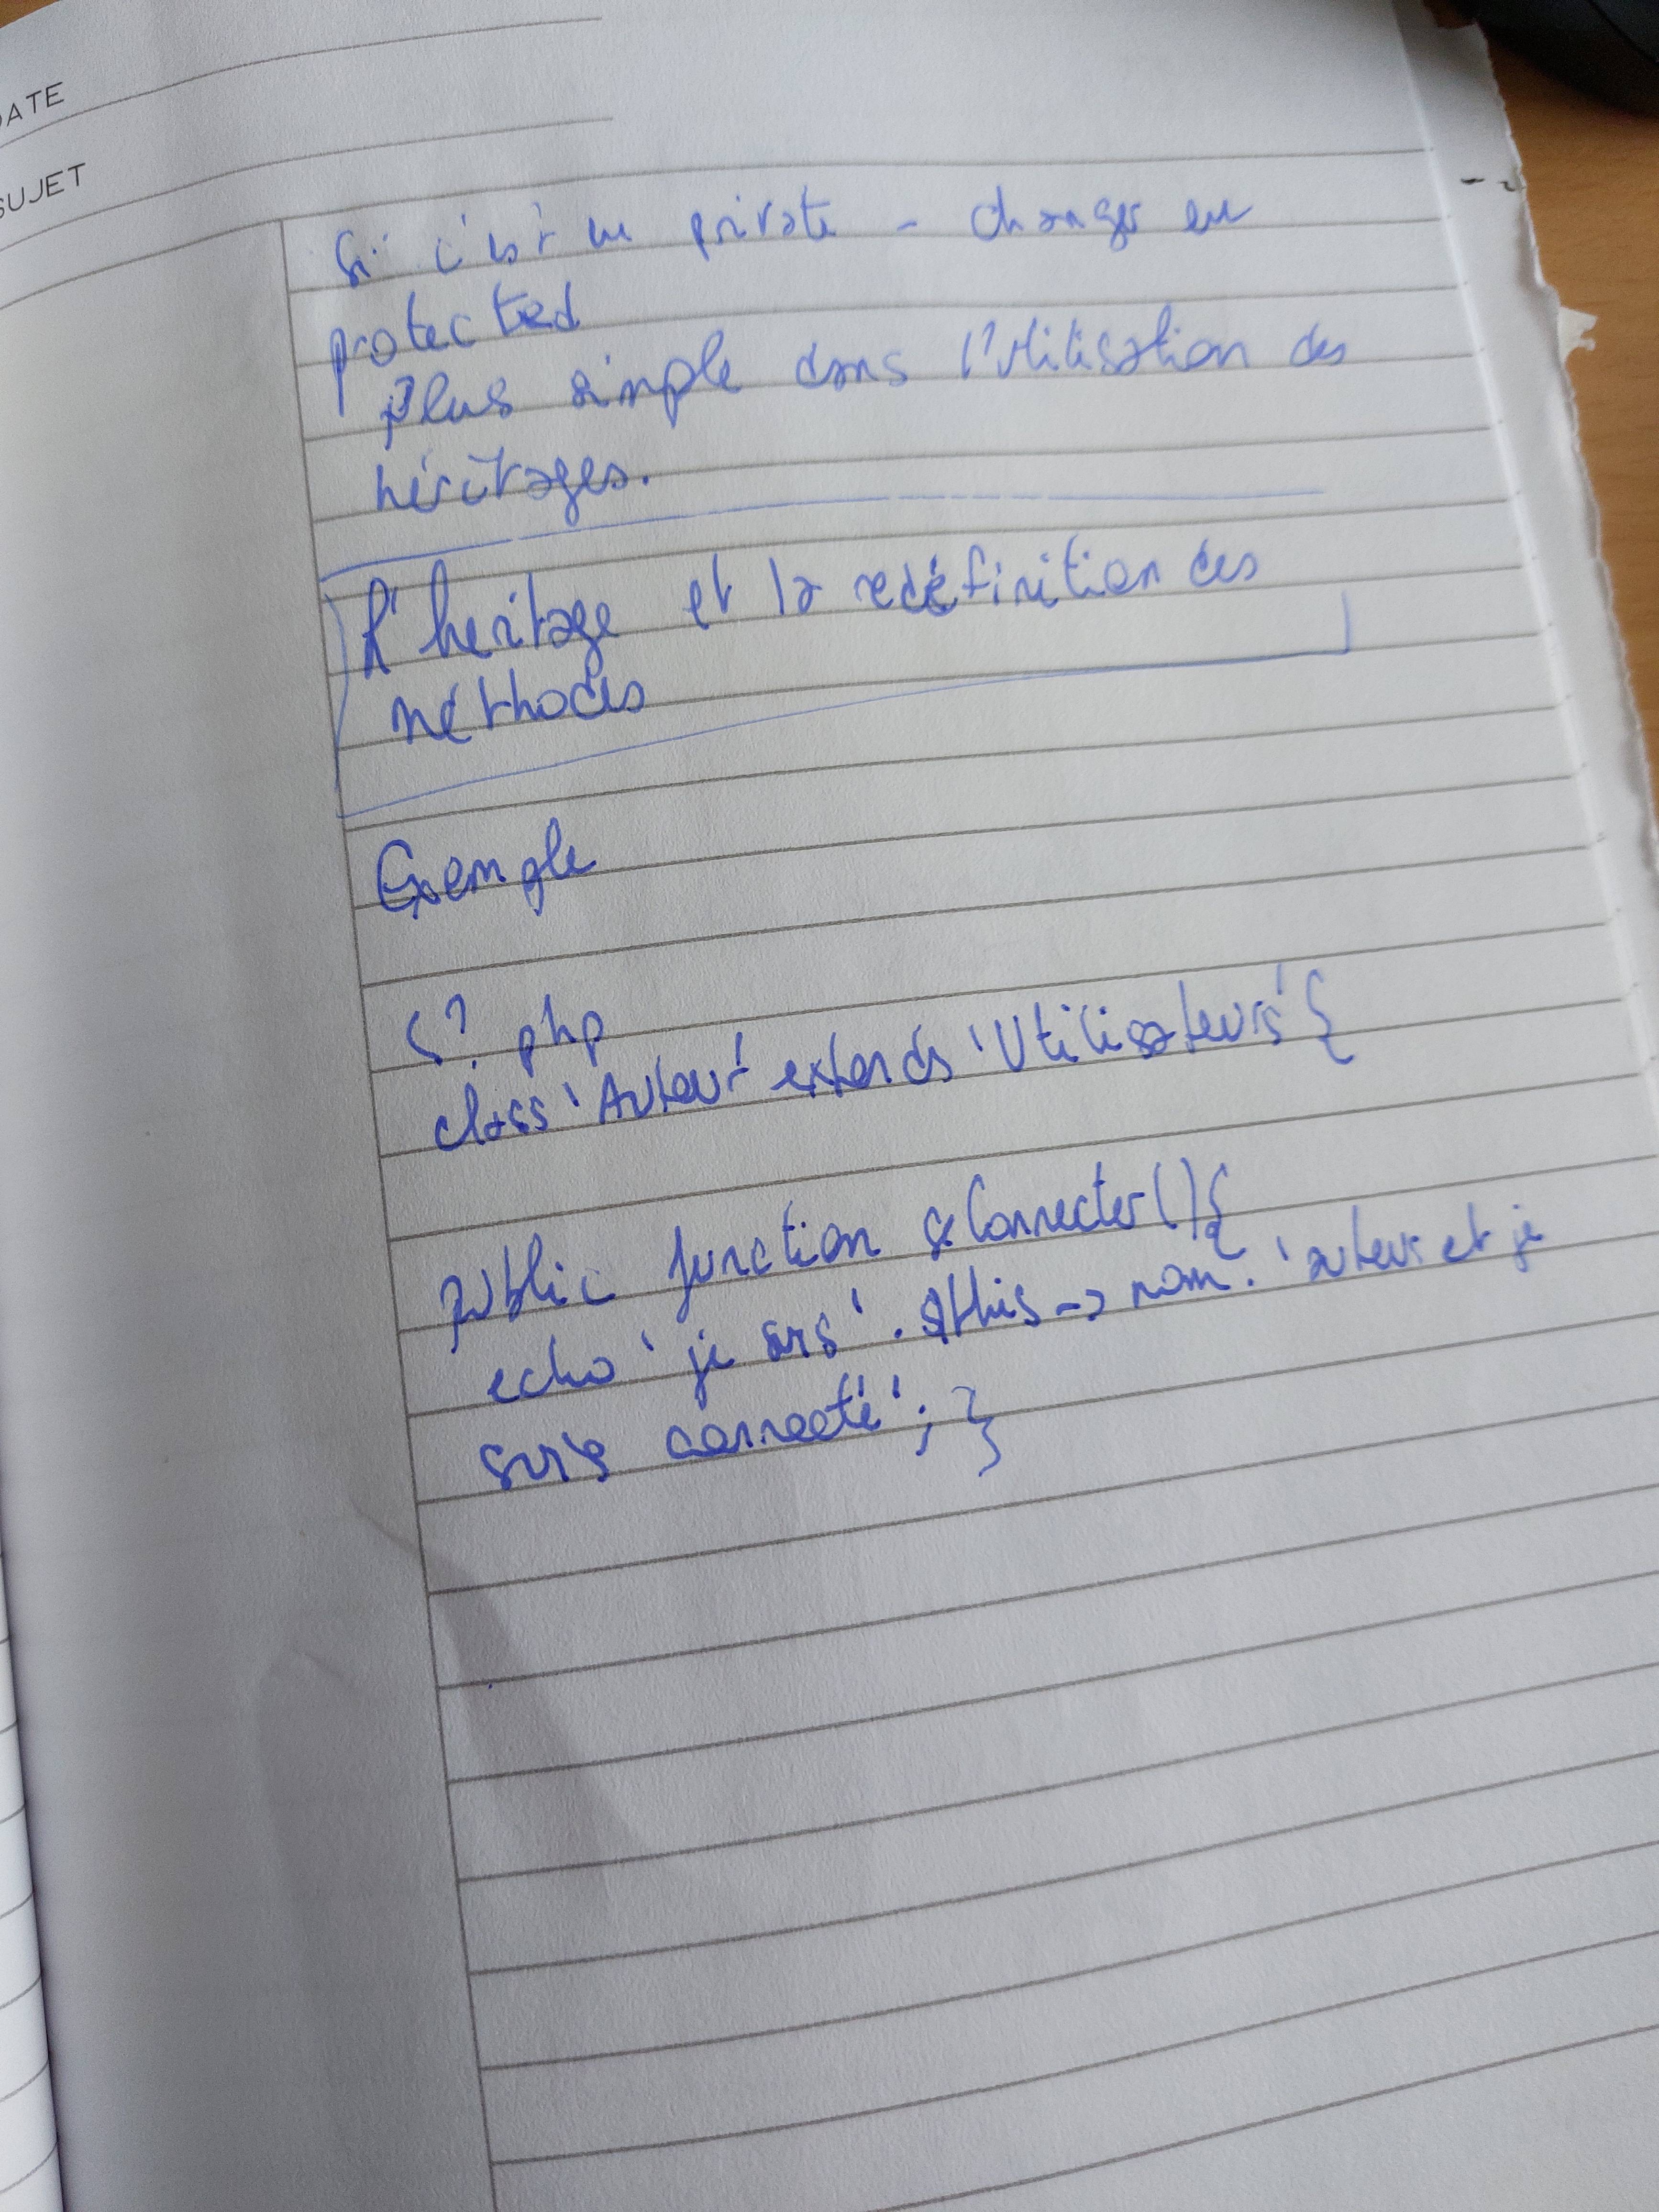 DATE
SUJET
Si c'est un private - changer en
protected
Plus simple dans l'utilisation des
héritages.
L'héritage et la redéfinition des
méthodes
Exemple
<? php
class 'Auteur' extends 'Utilisateurs' {
public function seConnecter(){
echo ' je suis ' . $this -> nom . ' auteur et je
suis connecté ' ; }